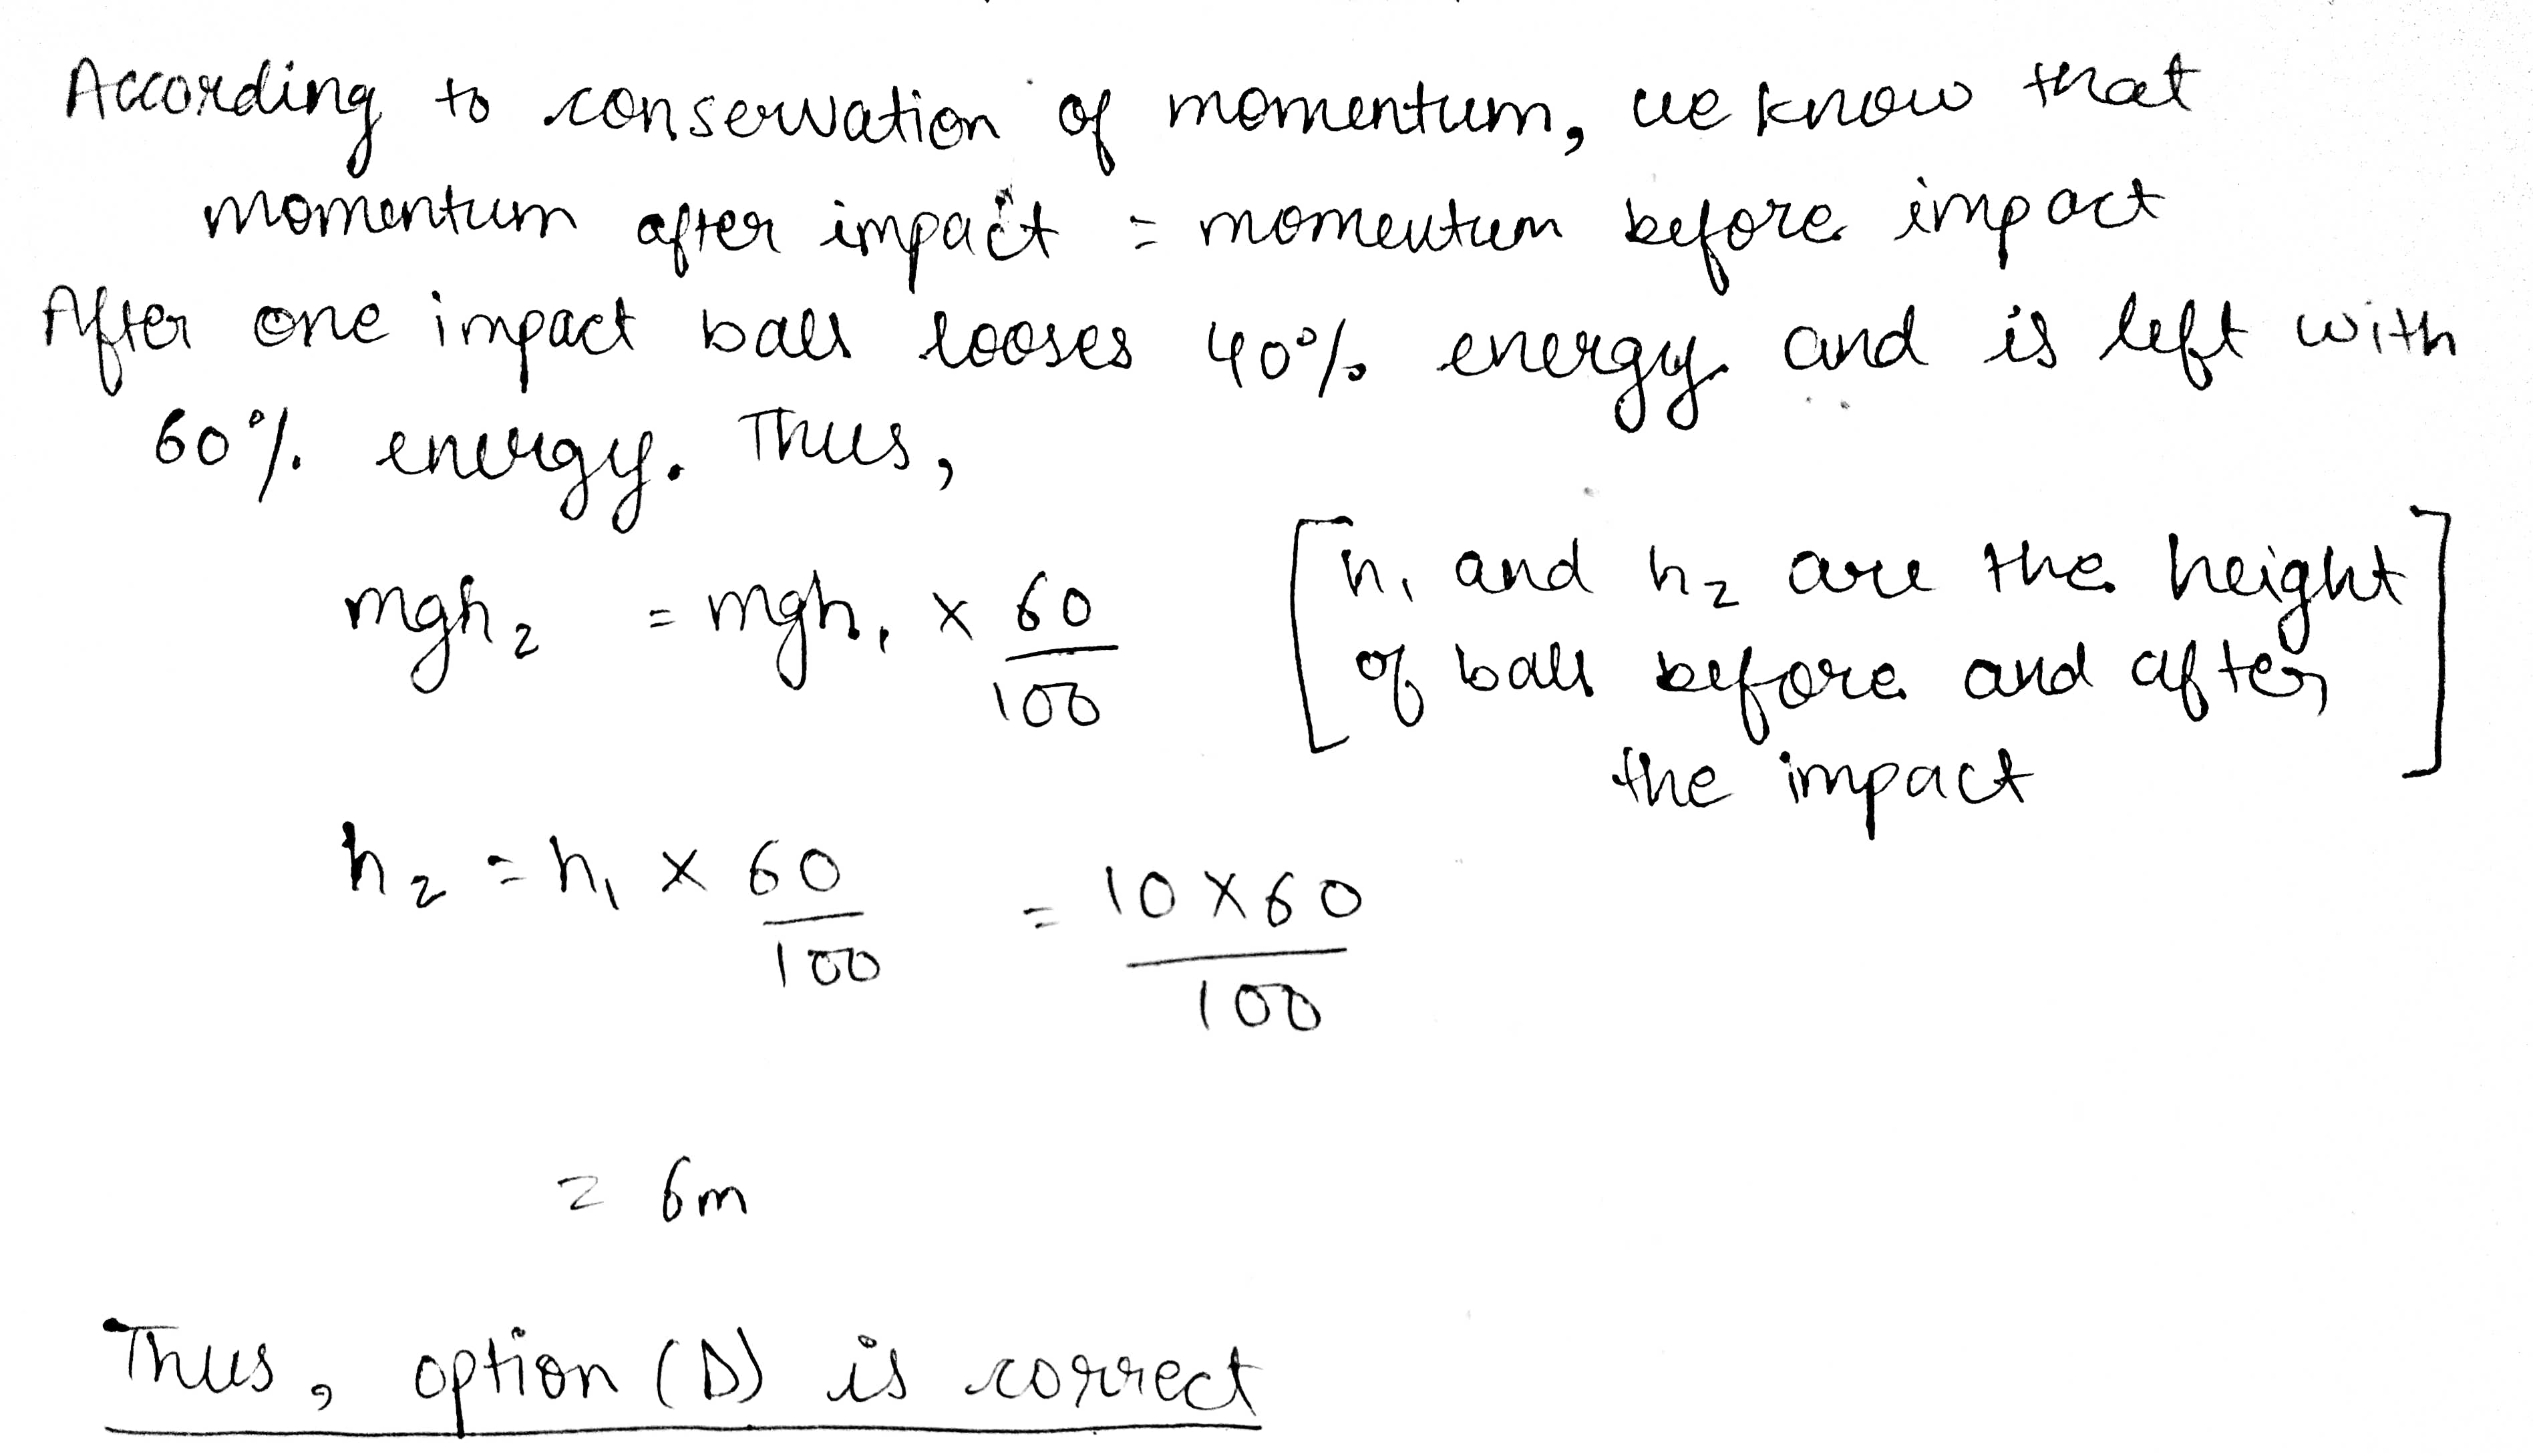 According to conservation of momentum, we know that
momentum after impact = momentum before impact
After one impact ball looses 40% energy and is left with
60% energy. Thus,
mgh₂ = mgh₁ × 60/100 [h₁ and h₂ are the height
of ball before and after
the impact]
h₂ = h₁ × 60/100 = 10×60/100
= 6m
Thus, option (D) is correct